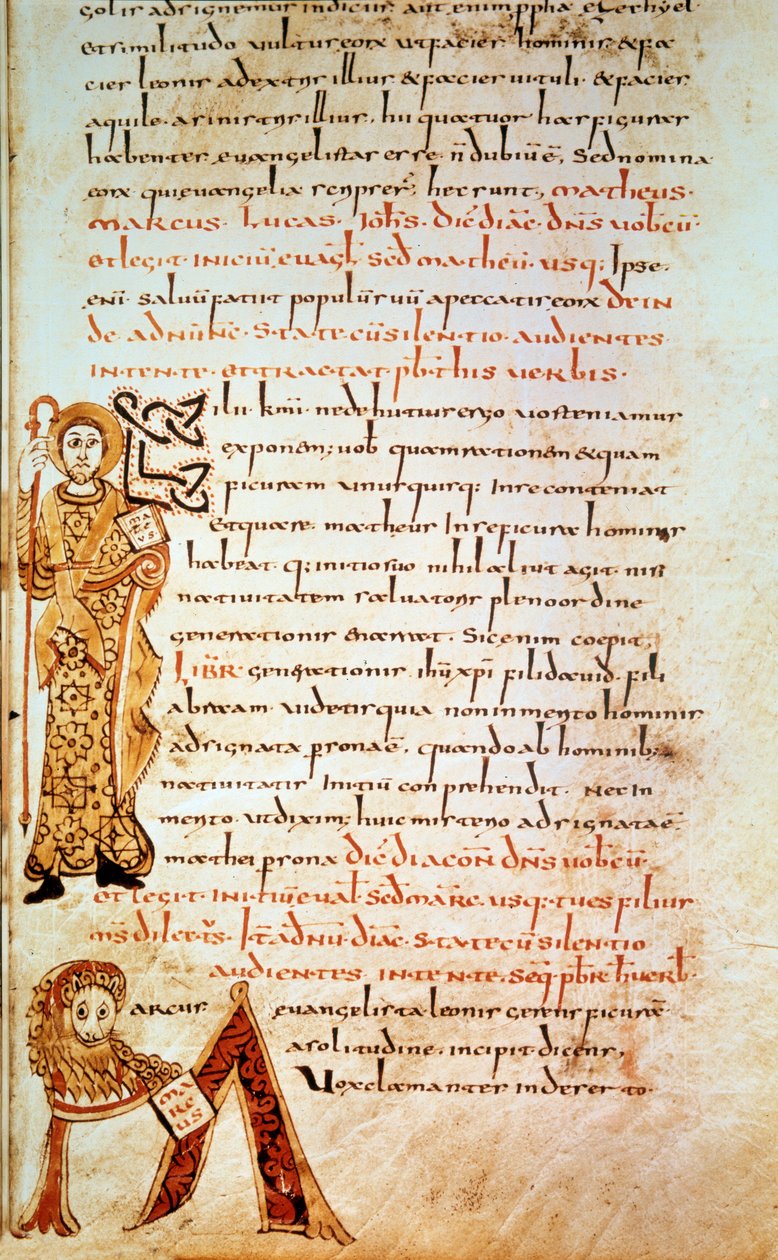 et similitudo vultus eorū ut facies hominis & fa
cies leonis ad extris illius & facies vituli & facies
aquile a sinistris illius, hii quatuor has figuras
habentes evangelistas esse n̄ dubiū ē, Sed nomina
eorū qui evangelia scripser̄ hec sunt, matheus.
marcus. Lucas. Joh̄s. dic̄ diac̄. dn̄s vob̄ cū
et legit iniciū evagl̄ Sed̄ matheū. usq; Ipse.
enī salvū faciit populū suū a peccatis eorū dein
de adnūnc̄. State cū silentio audientes
intente. et tractat pb̄ this verbis.
Filii km̄i ne de hutius ergo vos teniamus
exponem; vob̄ quam rationem & quam
ficuram unus quisq; In se conteniat
Et quare. matheus In se ficura hominis
habeat. q; initio suo nihil aliut agit. nisi
nativitatem salvatoris pleno ordine
generationis enarrat. Sic enim coepit,
LIBR generationis ihū xp̄i fili david. fili
abraam. videtis quia non inmento hominis
adsignata persona ē, quando ab hominib;
nativitatis Initiū conprehendit. nec in
mento. ut dixim; huic misterio adsignata ē.
mathei persona dic̄ diacon̄ dn̄s vob̄ cū.
et legit. initiū eval̄ Sed̄ marc̄. usq; tu es filius
ms̄ dilect̄s. It̄ adnū. diac̄. State cū silentio
audientes intente. Seq̄ pbr̄ h̄ verb̄.
ma
te
vs
Marcus evangelista leonis gerens ficurā
a solitudine. incipit dicens,
Vox clamantes in deserto.
ma
rc
us